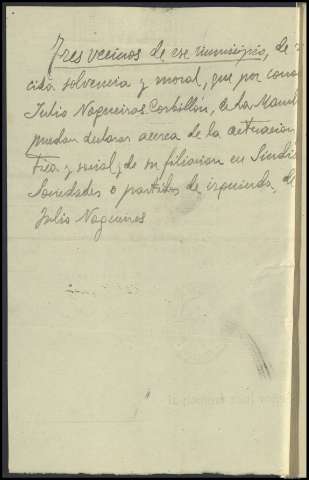 Tres vecinos de ese municipio, de
cida solvencia y moral, que por cono
Julio Nogueiras Castillón, de La
puedan declarar acerca de la actuacion
tica y social y de su filiacion en Sindi
Sociedades o partidos de izquierda, de
Julio Nogueiras